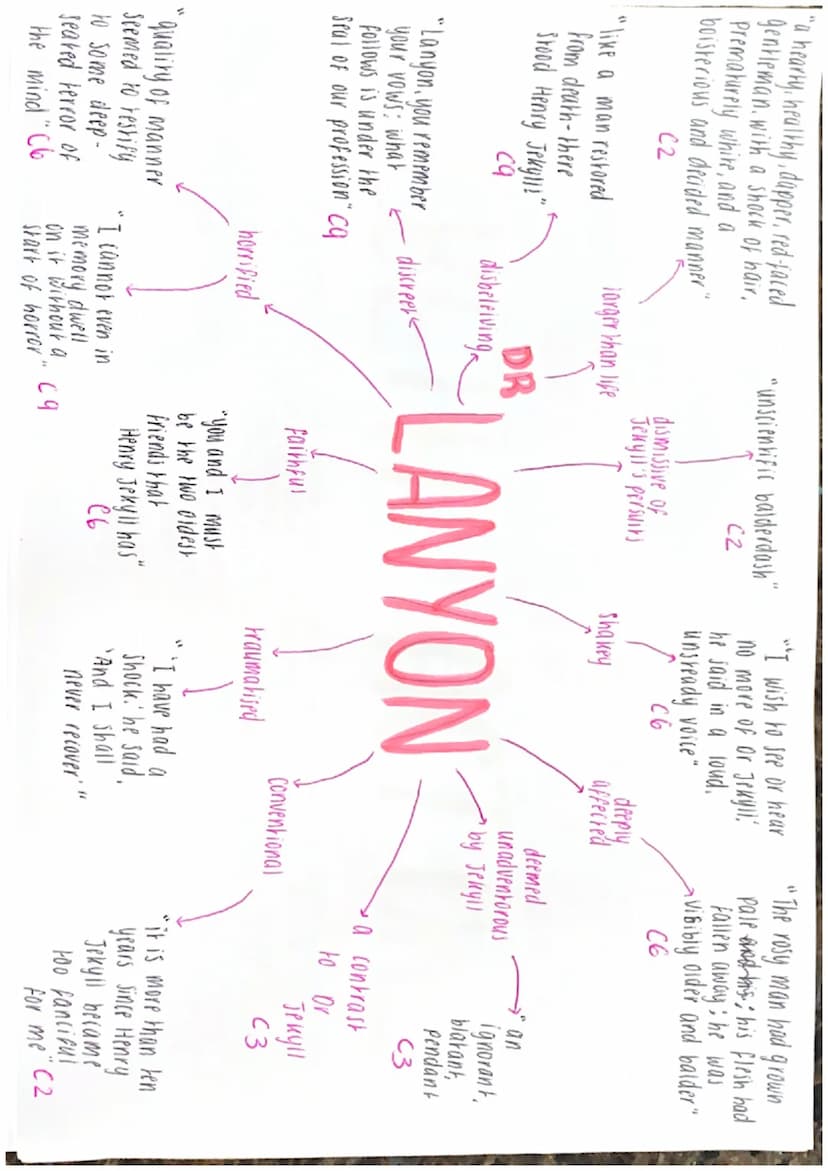 DR
LANYON
larger than life
"a hearty, healthy, dapper, red-faced
gentleman, with a shock of hair,
prematurely white, and a
boisterious and decided manner"
C2
dismissive of
Jekyll's persuits
"unscientific balderdash"
C2
shakey
"'I wish to see or hear
no more of Dr Jekyll,'
he said in a loud,
unsteady voice"
C6
deeply
affected
"The rosy man had grown
pale and his; his flesh had
fallen away; he was
visibly older and balder"
C6
deemed
unadventorous
by Jekyll
"an
ignorant,
blatant,
pendant
C3
a contrast
to Dr
Jekyll
C3
conventional
"it is more than ten
years since Henry
Jekyll became
too fanciful
for me" C2
traumatised
"'I have had a
shock,' he said,
'And I shall
never recover'"
faithful
"you and I must
be the two oldest
friends that
Henry Jekyll has"
C6
horrified
"I cannot even in
memory dwell
on it without a
start of horror" C9
"quality of manner
seemed to testify
to some deep-
seated terror of
the mind" C6
discreet
"Lanyon, you remember
your vows: what
follows is under the
seal of our profession" C9
disbeleiving
"like a man restored
from death - there
stood Henry Jekyll!"
C9